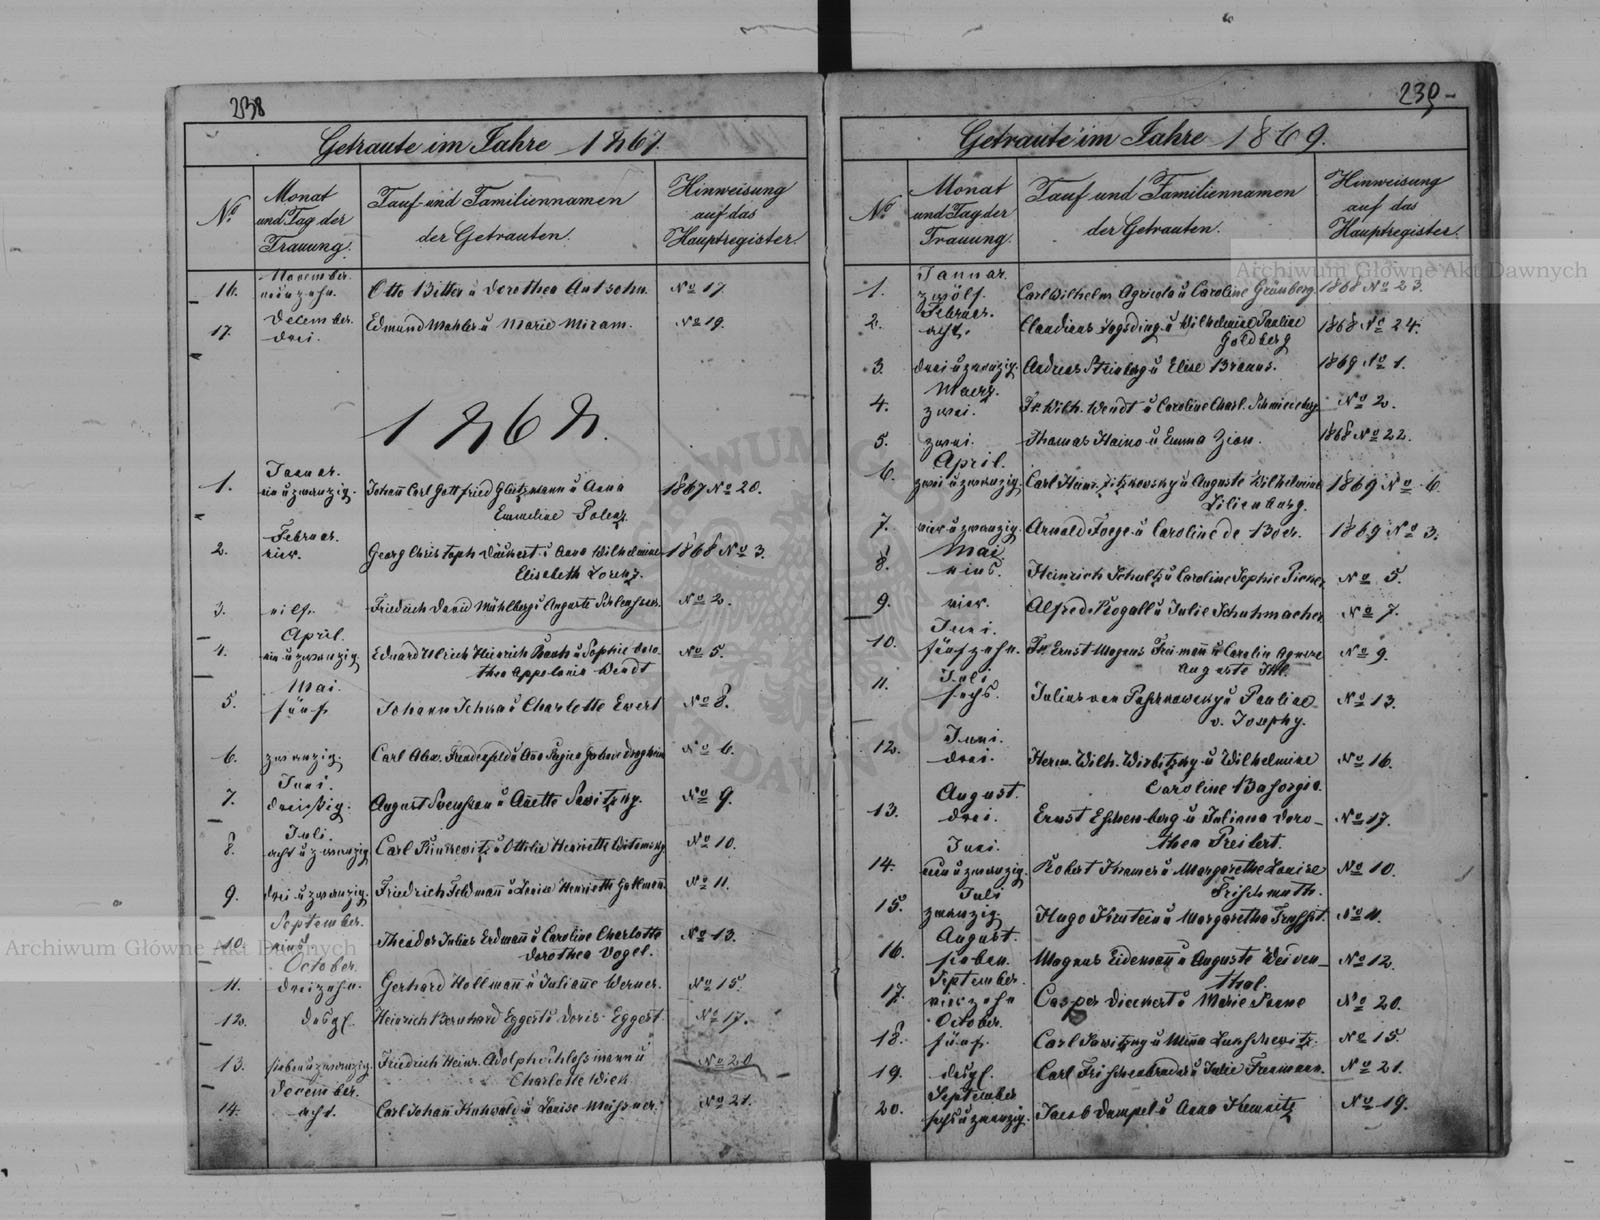 238
Getraute im Jahre 1867.
No
Monat
und Tag der
Trauung.
Tauf- und Familiennamen
der Getrauten.
Hinweisung
auf das
Hauptregister.
November.
16. neunzehn. Otto Bitter u Dorothea Antsohn. No 17.
December.
17. drei. Edmund Mahler u Marie Miram. No 19.
1868.
Januar.
1. ein u zwanzig. Johann Carl Gottfried Glützmann u Anna 1867 No 20.
Emmeline Polenz
Februar.
2. vier. Georg Christoph u Anna Wilhelmine 1868 No 3.
Elisabeth Lorenz.
3. eilf. Friedrich David Mühlberg u Auguste No 2.
April.
4. ein u zwanzig. Eduard Ulrich Heinrich u Sophie Doro- No 5.
thea Appolonia Wendt
Mai.
5. fünf. Johann u Charlotte Ewert No 8.
6. zwanzig. Carl Alex. Freudenfeld u No 6.
Juni.
7. dreißig. August u Anette Sawitzky. No 9.
Juli.
8. acht u zwanzig Carl u Ottilie Henriette No 10.
9. drei u zwanzig. Friedrich Feldmann u Louise Henriette No 11.
September.
10. eins. Theodor Julius Erdmann u Caroline Charlotte No 13.
Dorothea Vogel.
October.
11. dreizehn. Gerhard Hollmann u Julianne Werner. No 15.
12. desgl. Heinrich Bernhard Eggert u Doris Eggert. No 17.
13. sieben u zwanzig. Friedrich Heinr. Adolph Schlossmann u No 20
Charlotte Wick
December.
14. acht. Carl Johann u Louise Meissner. No 21.
239
Getraute im Jahre 1869.
No
Monat
und Tag der
Trauung.
Tauf und Familiennamen
der Getrauten.
Hinweisung
auf das
Hauptregister.
Januar.
1. zwölf. Carl Wilhelm Agricola u Caroline Grünberg 1868 No 23.
Februar.
2. acht. Claudius u Wilhelmine Pauline 1868 No 24.
Goldberg
3. drei u zwanzig. Andreas Steinberg u Elise Brauns. 1869 No 1.
Maerz.
4. zwei. Fr. Wilh. Wendt u Caroline Charl. No 2.
5. zwei. Thomas Haino u Emma Zion. 1868 No 22.
April.
6. zwei u zwanzig. Carl u Auguste Wilhelmine 1869 No 6.
Lilienburg.
7. vier u zwanzig. Arnold Foege u Caroline de Boer. 1869 No 3.
Mai.
8. eins. Heinrich Schultz u Caroline Sophie No 5.
9. vier. Alfred Rogall u Julie Schuhmacher No 7.
Juni.
10. fünfzehn. Fr. Ernst Magnus Freimann u Carolin Agnese No 9.
Auguste Ihl.
Juli
11. sechs. Julius von u Pauline No 13.
v. Josephy.
Juni.
12. drei. Herm. Wilh. Wirbitzky u Wilhelmine No 16.
Caroline
August.
13. drei. Ernst Eschenberg u Juliana Doro- No 17.
thea Preibert.
Juni.
14. ein u zwanzig. Robert Kramer u Margarethe Louise No 10.
Frischmuth.
Juli
15. zwanzig. Hugo u Margaretha No 11.
August.
16. sieben. Magnus Eidemann u Auguste Weiden- No 12.
thal.
September.
17. vierzehn Casper Dieckert u Marie No 20.
October.
18. fünf. Carl Sawitzky u Mina No 15.
19. desgl. Carl Frischenbruder u Julie Freimann. No 21.
September
20. sechs u zwanzig. Jacob Dampel u Anna Kremnitz No 19.
Archiwum Główne Akt Dawnych
Archiwum Główne Akt Dawnych